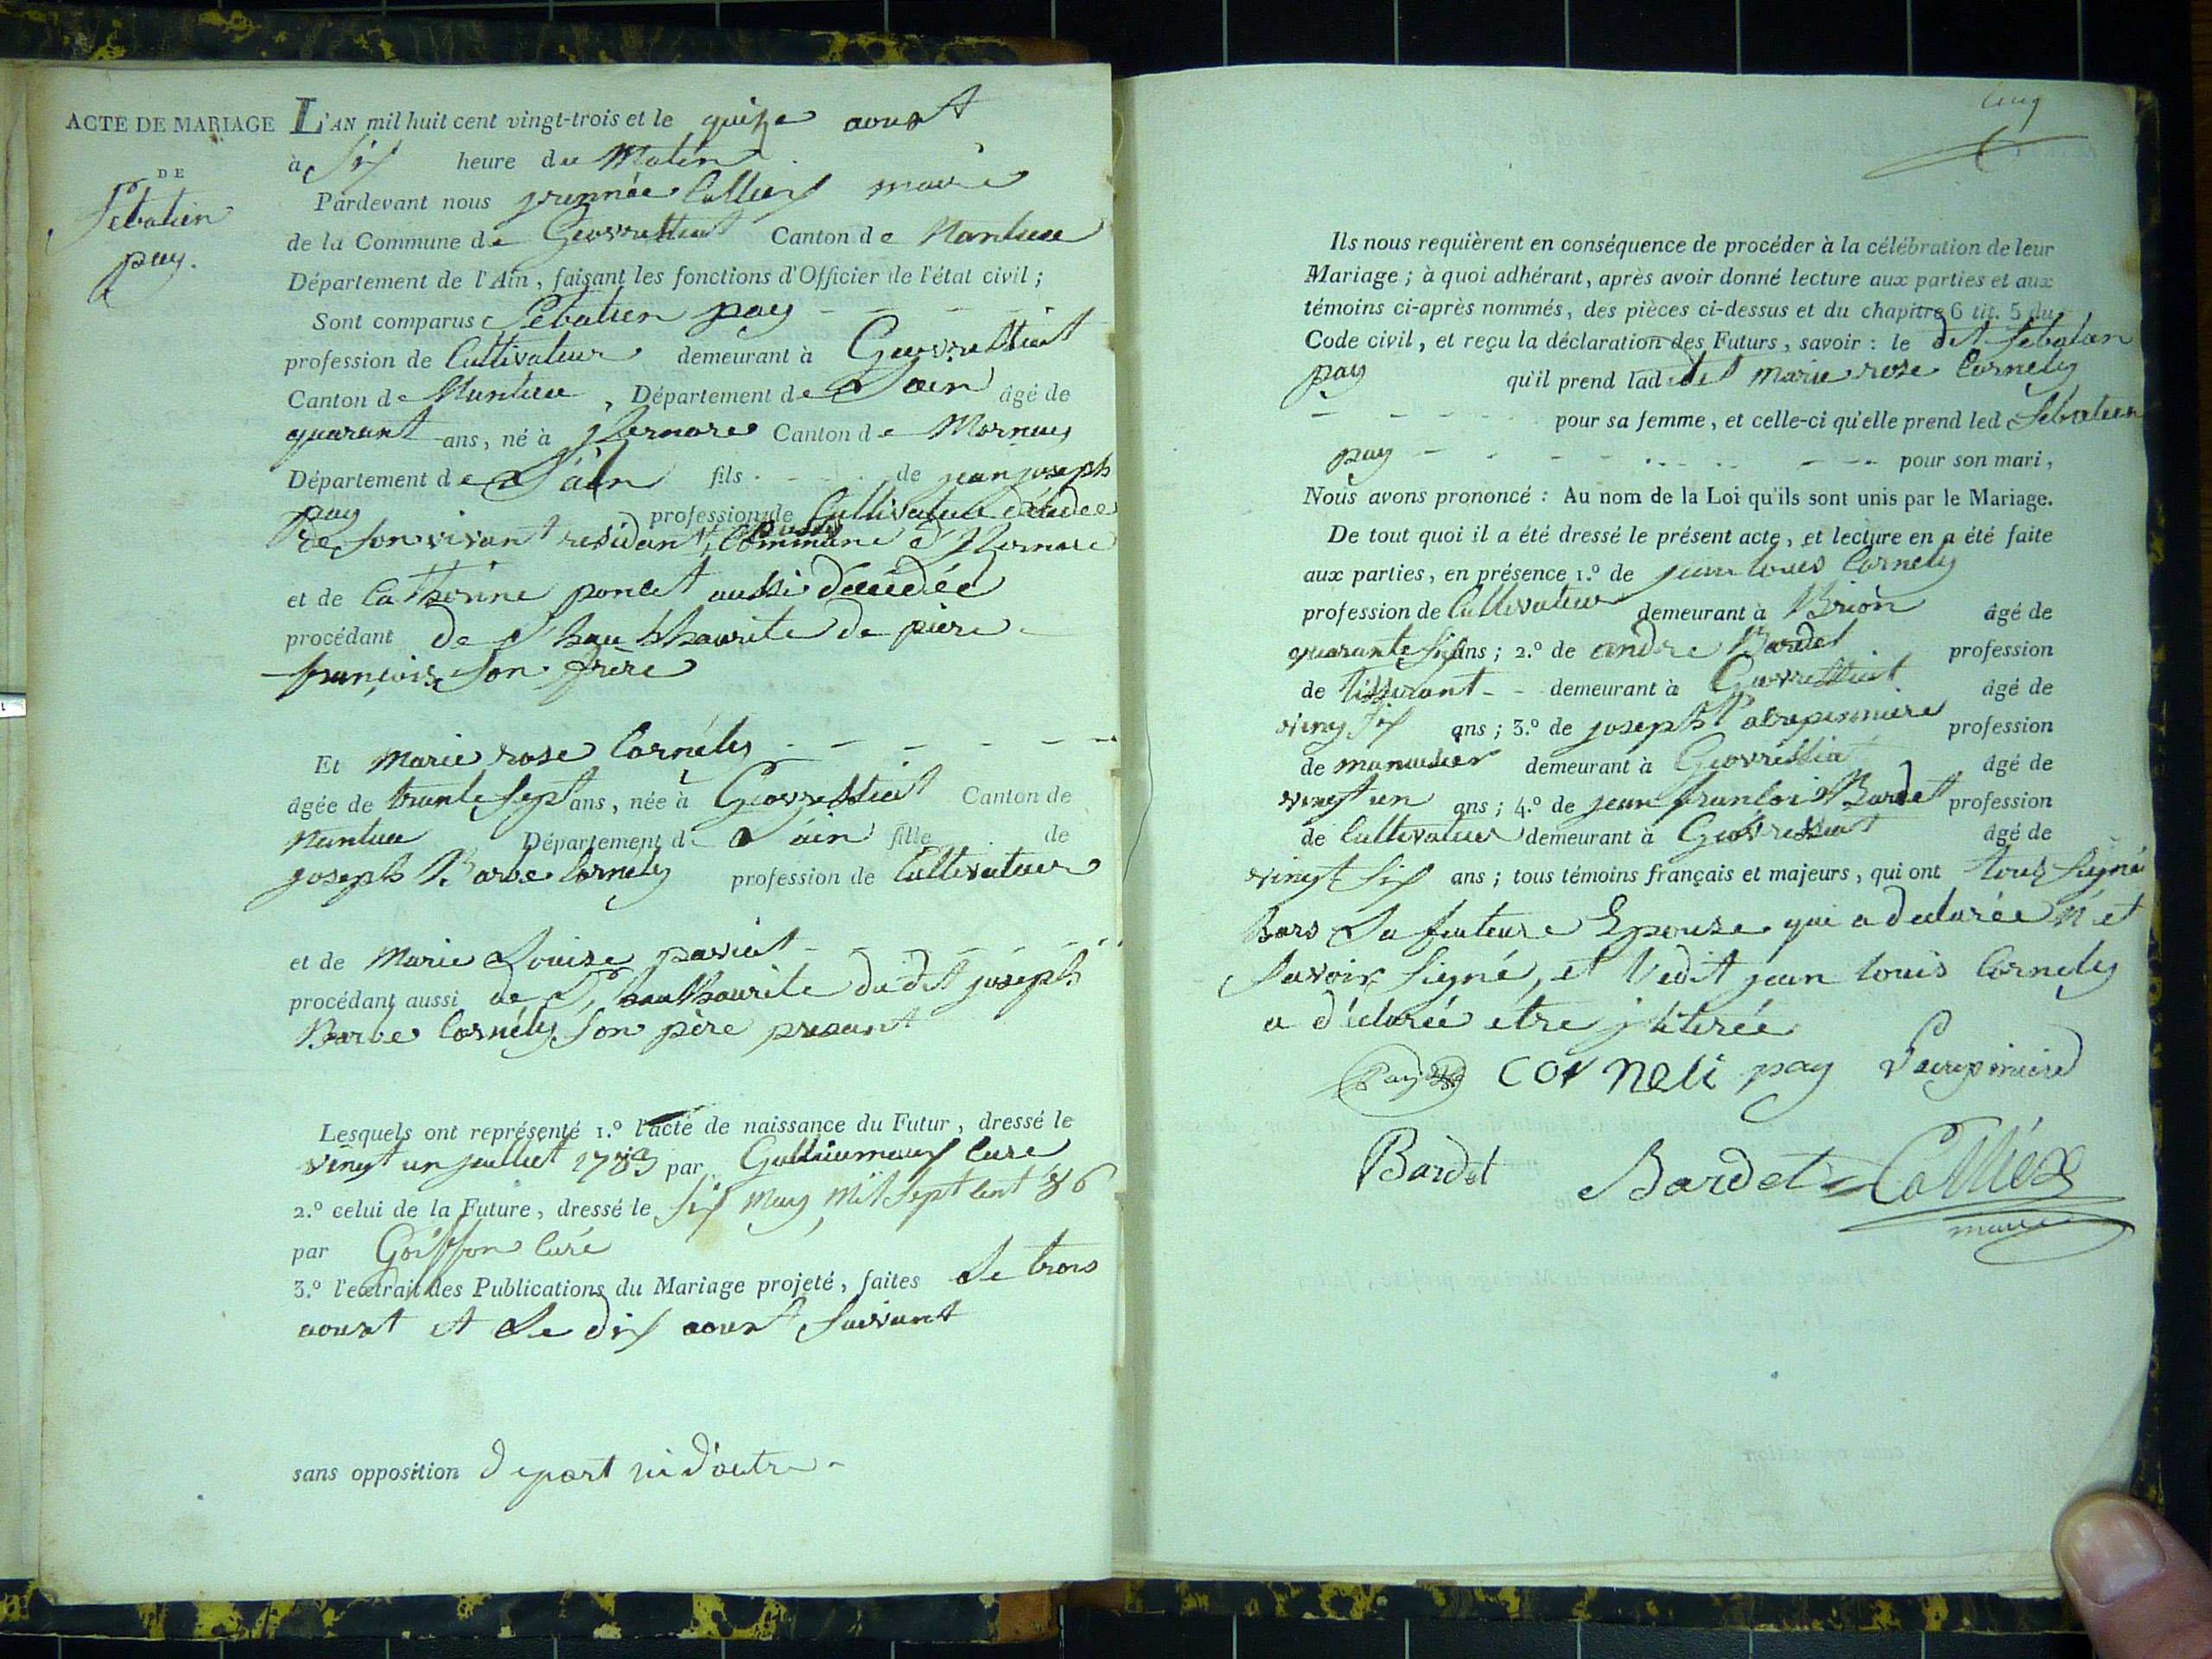 ACTE DE MARIAGE
DE
Sebatien
pay.
L'AN mil huit cent vingt-trois et le quize aoust
à six heure du Matin
Pardevant nous Callier maire
de la Commune de Geovressiat Canton de Nantua
Département de l'Ain, faisant les fonctions d'Officier de l'état civil;
Sont comparus Sebatien pay
profession de Cultivateur demeurant à Geovressiat
Canton de Nantua, Département de L'ain âgé de
quarant ans, né à Canton de Mornay
Département de L'ain fils de jean joseph
pay profession de Cultivateur décidée
de son vivant residant Commune
et de Catherine poncet aussi décidée
procédant de
françois son frère
Et Marie rose Cornély
âgée de trante sept ans, née à Geovressiat Canton de
Nantua Département de L'ain fille de
joseph Barbe Cornély profession de Cultivateur
et de Marie Louise paviot
procédant aussi de du dit joseph
Barbe Cornély son père presant
Lesquels ont représenté 1.º l'acte de naissance du Futur, dressé le
vingt un juillet 1783 par Curé
2.º celui de la Future, dressé le six may mil sept cent 86
par Goiffon Curé
3.º l'extrait des Publications du Mariage projeté, faites Le trois
aoust et Le dix aoust suivant
sans opposition depart ni d'autre
Ils nous requièrent en conséquence de procéder à la célébration de leur
Mariage; à quoi adhérant, après avoir donné lecture aux parties et aux
témoins ci-après nommés, des pièces ci-dessus et du chapitre 6 tit. 5 du
Code civil, et reçu la déclaration des Futurs, savoir: le dit Sebatien
pay qu'il prend ladite marie rose Cornely
pour sa femme, et celle-ci qu'elle prend led Sebatien
pay pour son mari,
Nous avons prononcé: Au nom de la Loi qu'ils sont unis par le Mariage.
De tout quoi il a été dressé le présent acte, et lecture en a été faite
aux parties, en présence 1.º de jean louis Cornely
profession de Cultivateur demeurant à Brion âgé de
quarante six ans; 2.º de andre Bardet profession
de tisserant demeurant à Geovressiat âgé de
vieng six ans; 3.º de joseph profession
de manusier demeurant à Geovressiat âgé de
vingt un ans; 4.º de jean françoi Bardet profession
de Cultivateur demeurant à Geovressiat âgé de
vingt six ans; tous témoins français et majeurs, qui ont tous signé
hors La futeure Epouse qui a declarée n'et
savoir signé, et ledit jean louis Cornely
a déclarée être
Pay CORNELI pay
Bardet Bardet Calliex
maire